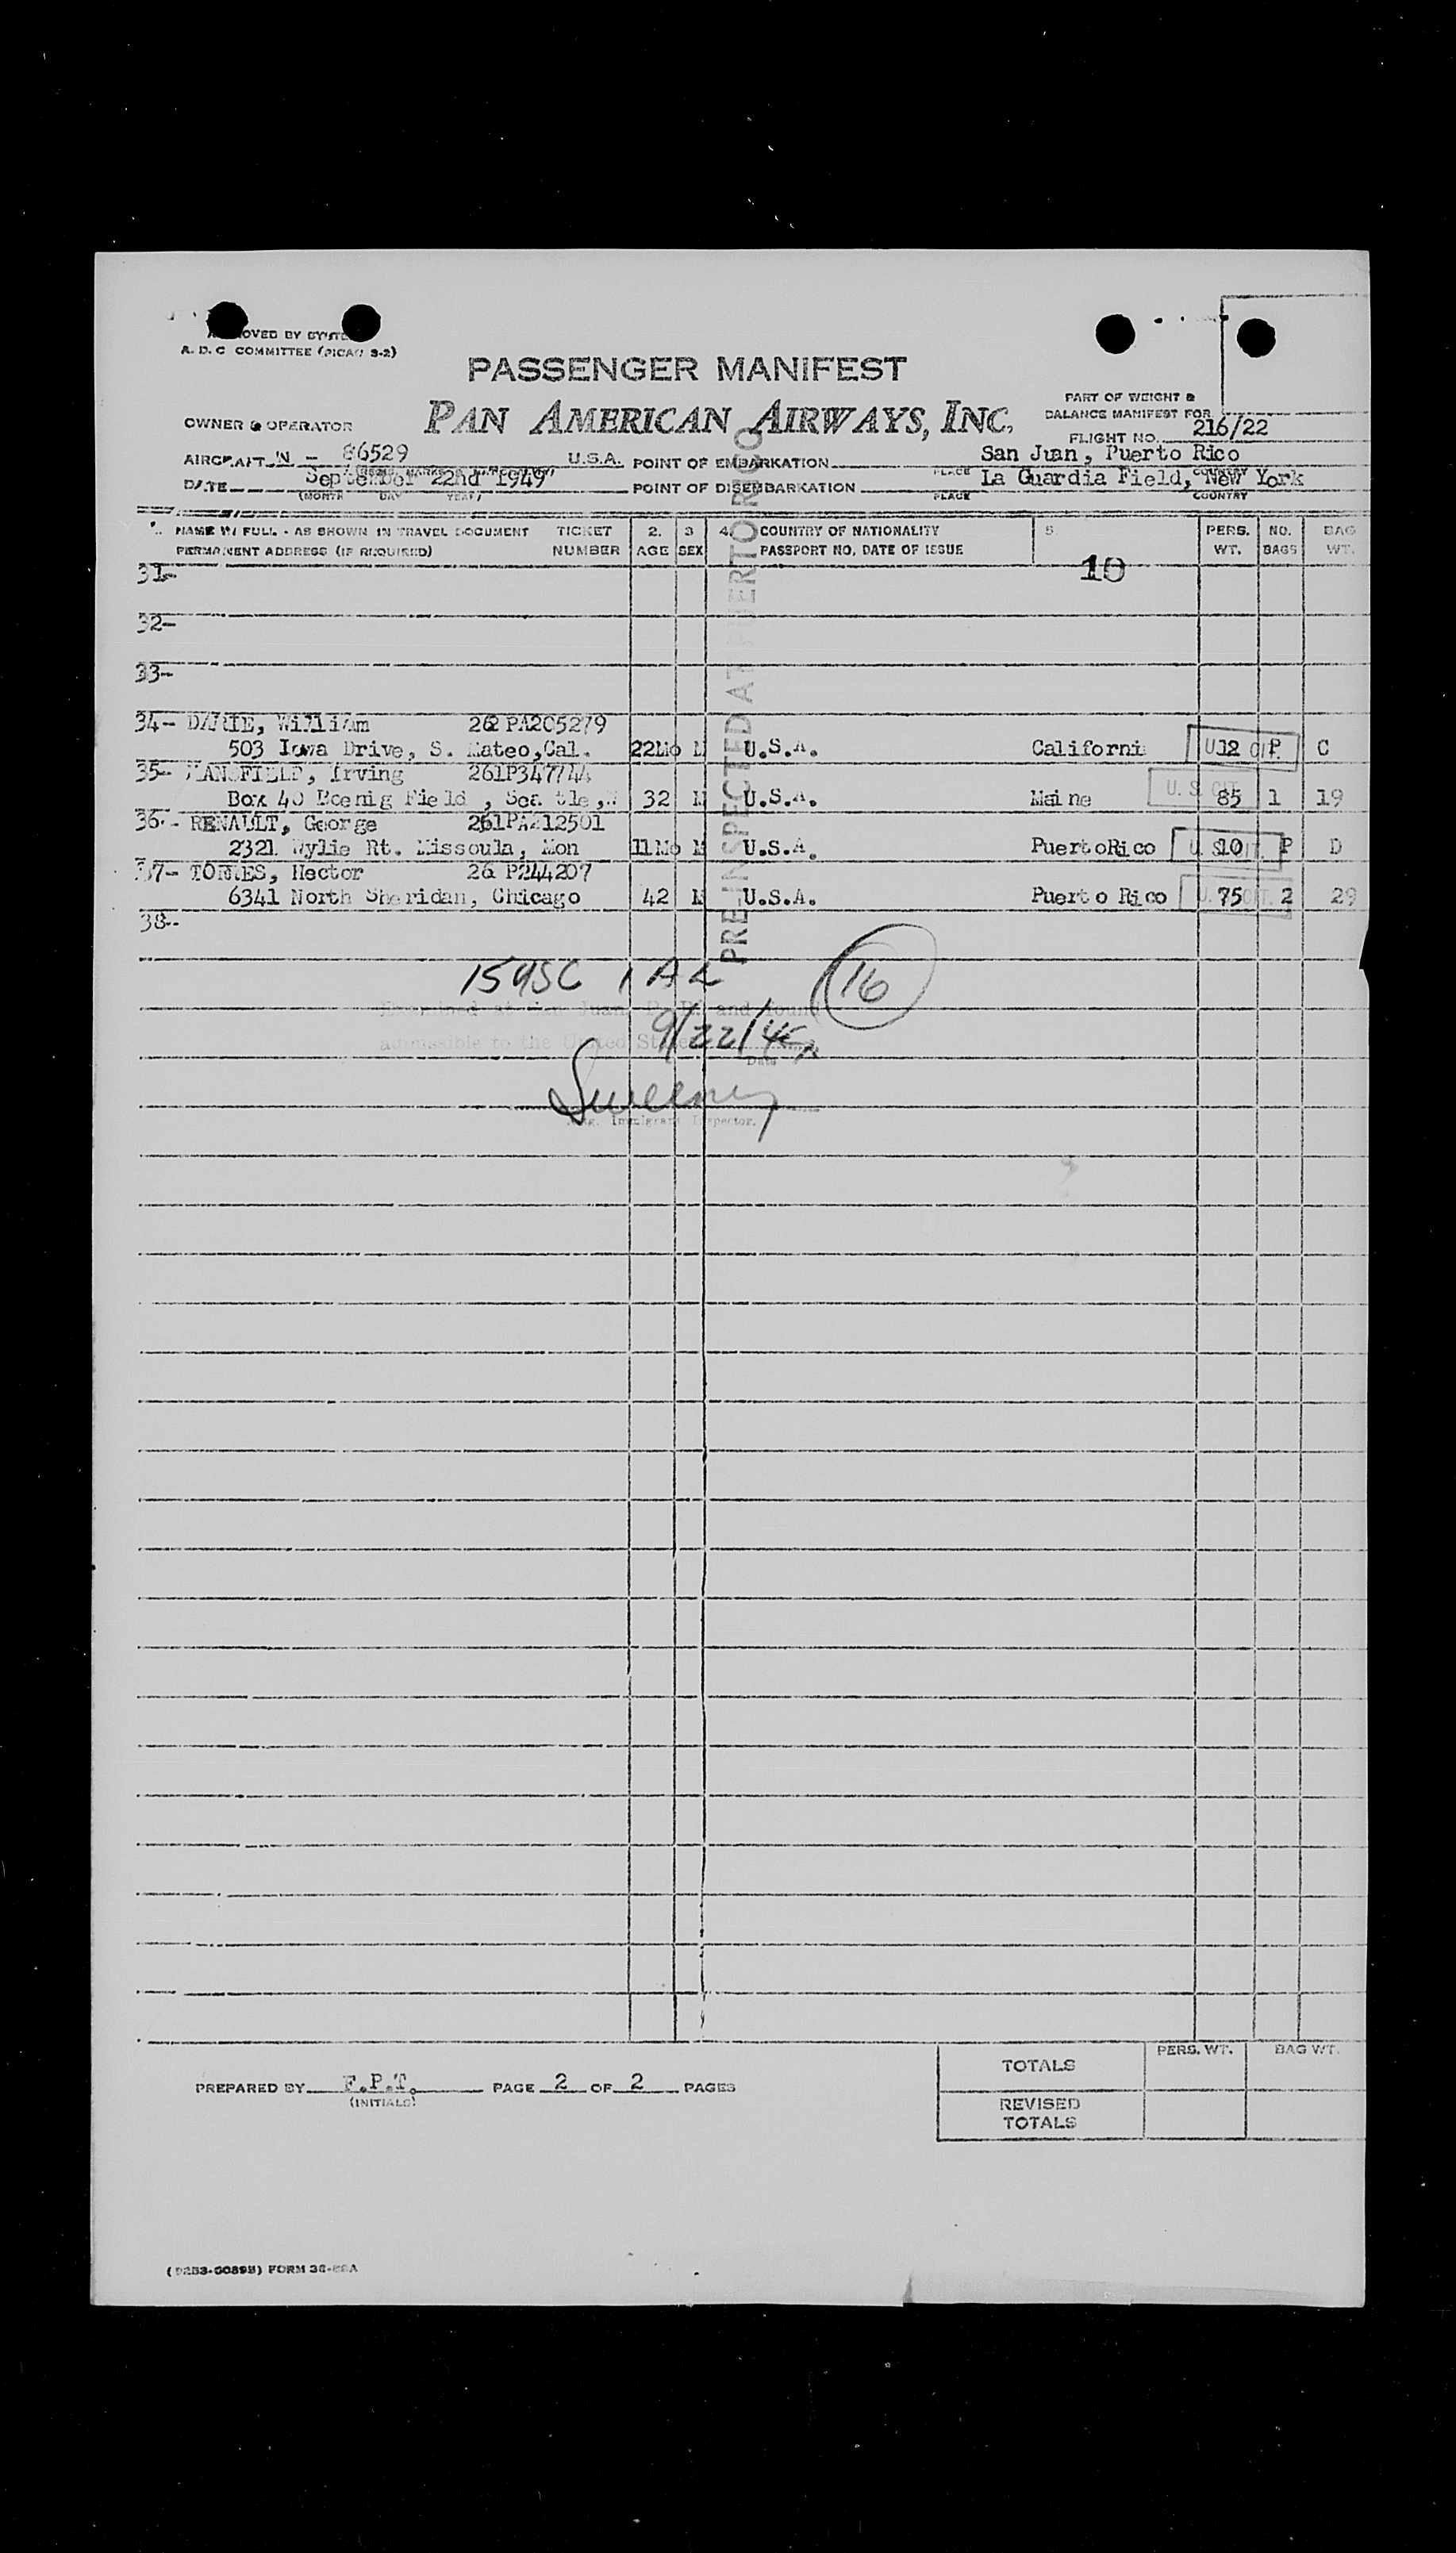 OVED BY
A. D. C COMMITTEE (PICAO S-2)
PASSENGER MANIFEST
PAN AMERICAN AIRWAYS, INC.
PART OF WEIGHT &
BALANCE MANIFEST FOR
FLIGHT NO. 216/22
OWNER & OPERATOR
AIRCRAFT N - 86529 U.S.A. POINT OF EMBARKATION San Juan, Puerto Rico
PLACE COUNTRY
DATE September 22nd 1949 POINT OF DISEMBARKATION La Guardia Field, New York
(MONTH DAY YEAR) PLACE COUNTRY
NAME IN FULL - AS SHOWN IN TRAVEL DOCUMENT TICKET 2. 3 4. COUNTRY OF NATIONALITY 5. PERS. NO. BAG
PERMANENT ADDRESS (IF REQUIRED) NUMBER AGE SEX PASSPORT NO. DATE OF ISSUE WT. BAGS WT.
PRE-INSPECTED AT PUERTO RICO
31- 10
32-
33-
34- DARIE, William 262 PA205279
503 Iowa Drive, S. Mateo, Cal. 22Mo M U.S.A. Californi 12 P C
U. S. CIT.
35- MANSFIELD, Irving 261P347744
Box 40 Boenig Field , Sea tle, 32 M U.S.A. Maine 85 1 19
U. S. CIT.
36- RENAULT, George 261PA212501
2321 Wylie Rt. Missoula, Mon 11Mo M U.S.A. PuertoRico 10 P D
U. S. CIT.
37- TORRES, Hector 26 P244207
6341 North Sheridan, Chicago 42 M U.S.A. Puerto Rico 75 2 29
U. S. CIT.
38-
16
Examined at San Juan, P. R. and found
admissible to the United States 9/22/49
Date
Sweeney
Immigrant Inspector.
TOTALS PERS. WT. BAG WT.
REVISED
TOTALS
PREPARED BY F.P.T. PAGE 2 OF 2 PAGES
(INITIALS)